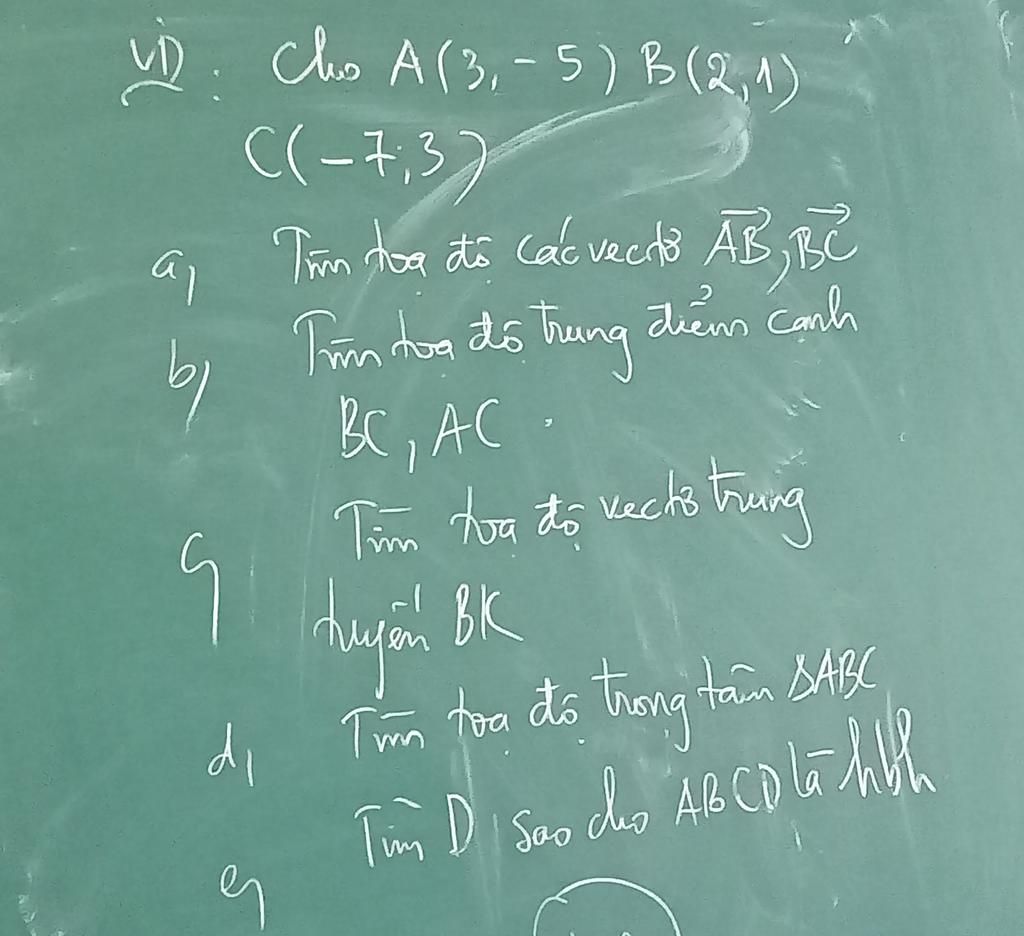 VD: Cho A(3,-5) B(2,1)
C(-7;3)
a, Tìm tọa độ các vectơ AB, BC
b, Tìm tọa độ trung điểm cạnh
BC, AC.
c, Tìm tọa độ vectơ trung
tuyến BK
d, Tìm tọa độ trọng tâm ΔABC
e, Tìm D, sao cho ABCD là hbh